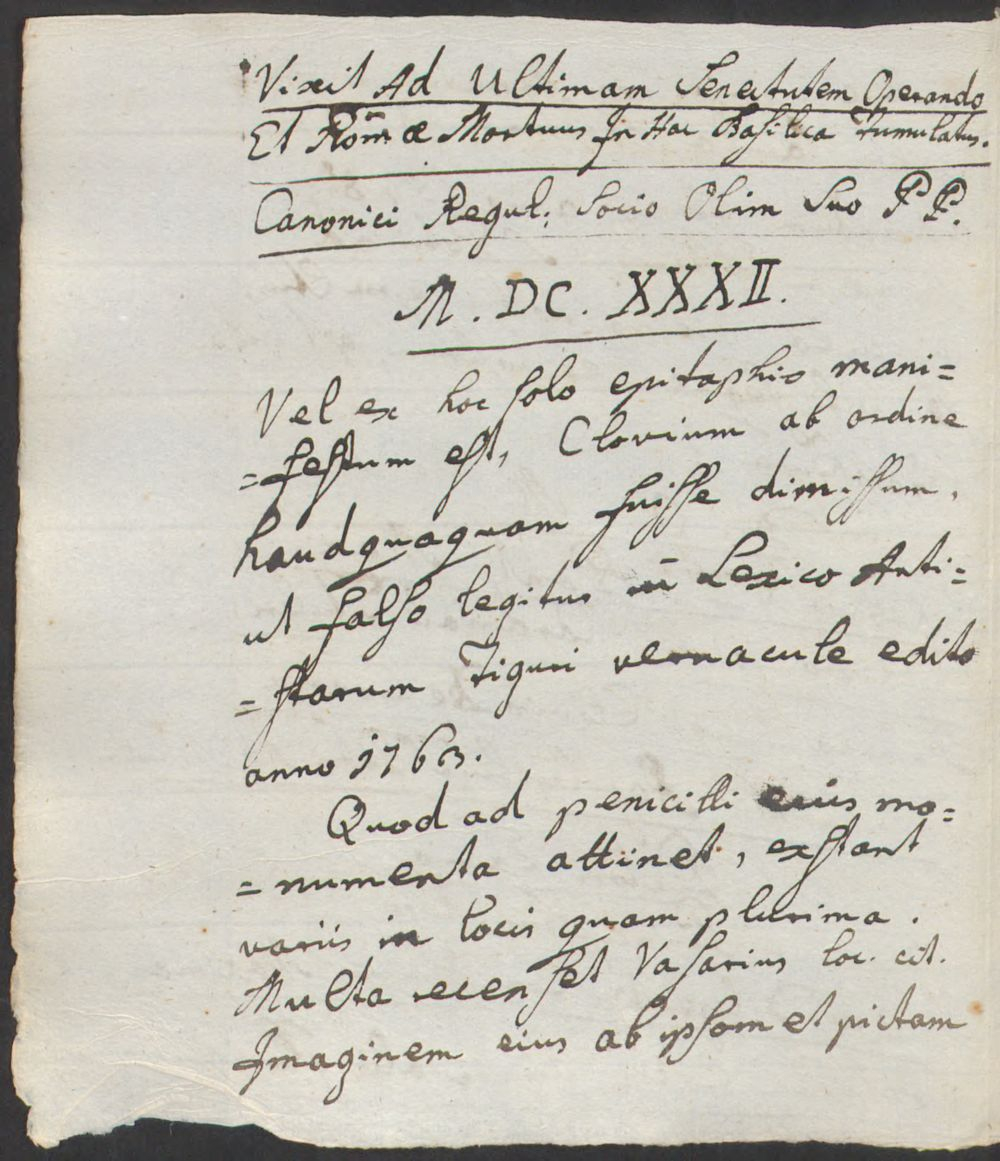 Vixit Ad Ultimam Senectutem Operando
Et Romæ Mortuus In Hac Basilica Tumulatus.
Canonici Regul: Socio Olim Suo P P.
M. DC. XXXII.
Vel ex hoc solo epitaphio mani=
=festum est, Clovium ab ordine
haudquaquam fuisse dimissum,
ut falso legitur in Lexico Arti=
=starum Tiguri vernacule edito
anno 1763.
Quod ad penicilli eius mo=
=numenta attinet, exstant
variis in locis quam plurima.
Multa recenset Vasarius loc. cit.
Imaginem eius ab ipsomet pictam